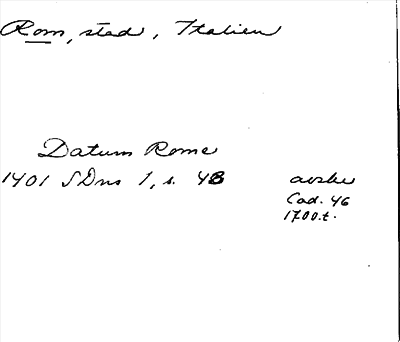 Rom, stad, Italien
Datum Rome
1401 SDns 1, s. 48 avskr
Cod. 46
1700.t.